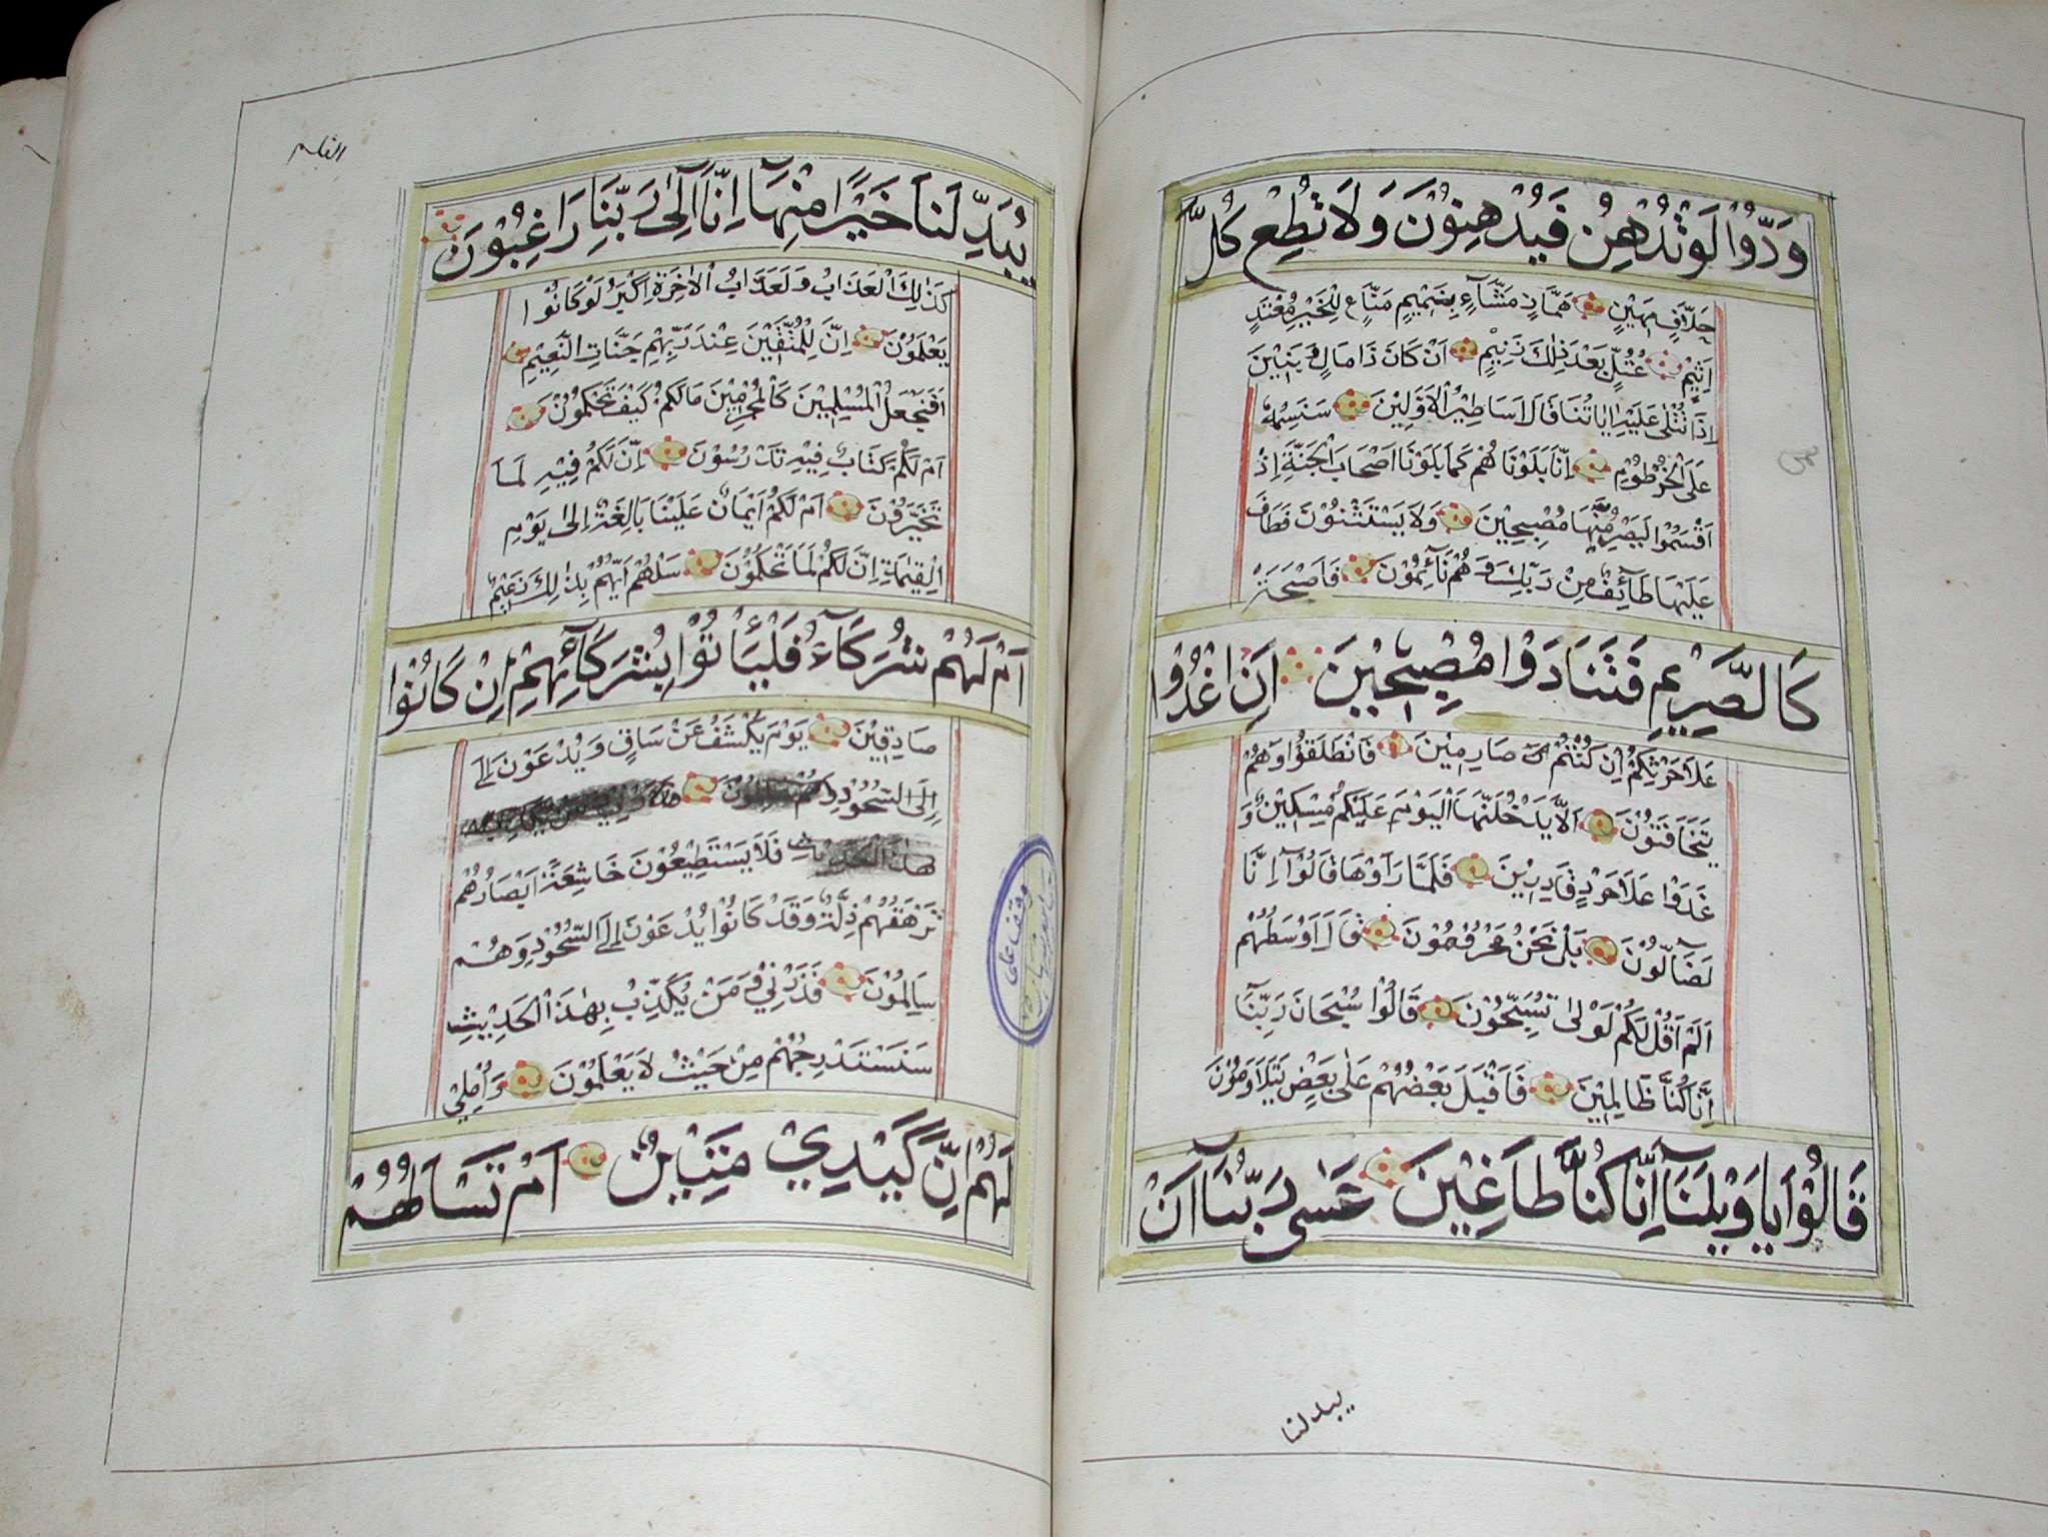 وَدُّوا لَوْ تُدْهِنُ فَيُدْهِنُونَ وَلَا تُطِعْ كُلَّ
حَلَّافٍ مَهِينٍ هَمَّازٍ مَشَّاءٍ بِنَمِيمٍ مَنَّاعٍ لِلْخَيْرِ مُعْتَدٍ
اَثِيمٍ عُتُلٍّ بَعْدَ ذٰلِكَ زَنِيمٍ اَنْ كَانَ ذَا مَالٍ وَبَنِينَ
اِذَا تُتْلٰى عَلَيْهِ اٰيَاتُنَا قَالَ اَسَاطِيرُ الْاَوَّلِينَ سَنَسِمُهُ
عَلَى الْخُرْطُومِ اِنَّا بَلَوْنَاهُمْ كَمَا بَلَوْنَا اَصْحَابَ الْجَنَّةِ اِذْ
اَقْسَمُوا لَيَصْرِمُنَّهَا مُصْبِحِينَ وَلَا يَسْتَثْنُونَ فَطَافَ
عَلَيْهَا طَآئِفٌ مِنْ رَبِّكَ وَهُمْ نَآئِمُونَ فَاَصْبَحَتْ
كَالصَّرِيمِ فَتَنَادَوْا مُصْبِحِينَ اَنِ اغْدُوا
عَلَا حَرْثِكُمْ اِنْ كُنْتُمْ صَارِمِينَ فَانْطَلَقُوا وَهُمْ
يَتَخَافَتُونَ اَلَّا يَدْخُلَنَّهَا الْيَوْمَ عَلَيْكُمْ مِسْكِينٌ وَ
غَدَوْا عَلَا حَرْدٍ قَادِرِينَ فَلَمَّا رَاَوْهَا قَالُوٓا اِنَّا
لَضَآلُّونَ بَلْ نَحْنُ مَحْرُومُونَ قَالَ اَوْسَطُهُمْ
اَلَمْ اَقُلْ لَكُمْ لَوْلَى تُسَبِّحُونَ قَالُوا سُبْحَانَ رَبِّنَآ
اِنَّا كُنَّا ظَالِمِينَ فَاَقْبَلَ بَعْضُهُمْ عَلٰى بَعْضٍ يَتَلَاوَمُونَ
قَالُوْا يَا وَيْلَنَآ اِنَّا كُنَّا طَاغِينَ عَسٰى رَبُّنَآ اَنْ
يبدلنا
يُبْدِلَنَا خَيْرًا مِنْهَآ اِنَّآ اِلٰى رَبِّنَا رَاغِبُونَ
كَذٰلِكَ الْعَذَابُ وَلَعَذَابُ الْاٰخِرَةِ اَكْبَرُ لَوْ كَانُوا
يَعْلَمُونَ اِنَّ لِلْمُتَّقِينَ عِنْدَ رَبِّهِمْ جَنَّاتِ النَّعِيمِ
اَفَنَجْعَلُ الْمُسْلِمِينَ كَالْمُجْرِمِينَ مَا لَكُمْ كَيْفَ تَحْكُمُونَ
اَمْ لَكُمْ كِتَابٌ فِيهِ تَدْرُسُونَ اِنَّ لَكُمْ فِيهِ لَمَا
تَخَيَّرُونَ اَمْ لَكُمْ اَيْمَانٌ عَلَيْنَا بَالِغَةٌ اِلٰى يَوْمِ
الْقِيٰمَةِ اِنَّ لَكُمْ لَمَا تَحْكُمُونَ سَلْهُمْ اَيُّهُمْ بِذٰلِكَ زَعِيمٌ
اَمْ لَهُمْ شُرَكَآءُ فَلْيَأْتُوْا بِشُرَكَآئِهِمْ اِنْ كَانُوْا
صَادِقِينَ يَوْمَ يُكْشَفُ عَنْ سَاقٍ وَيُدْعَوْنَ اِلَى
اِلَى السُّجُودِ
فَلَا يَسْتَطِيعُونَ خَاشِعَةً اَبْصَارُهُمْ
تَرْهَقُهُمْ ذِلَّةٌ وَقَدْ كَانُوا يُدْعَوْنَ اِلَى السُّجُودِ وَهُمْ
سَالِمُونَ فَذَرْنِي وَمَنْ يُكَذِّبُ بِهٰذَا الْحَدِيثِ
سَنَسْتَدْرِجُهُمْ مِنْ حَيْثُ لَا يَعْلَمُونَ وَاُمْلِي
لَهُمْ اِنَّ كَيْدِي مَتِينٌ اَمْ تَسْاَلُهُمْ